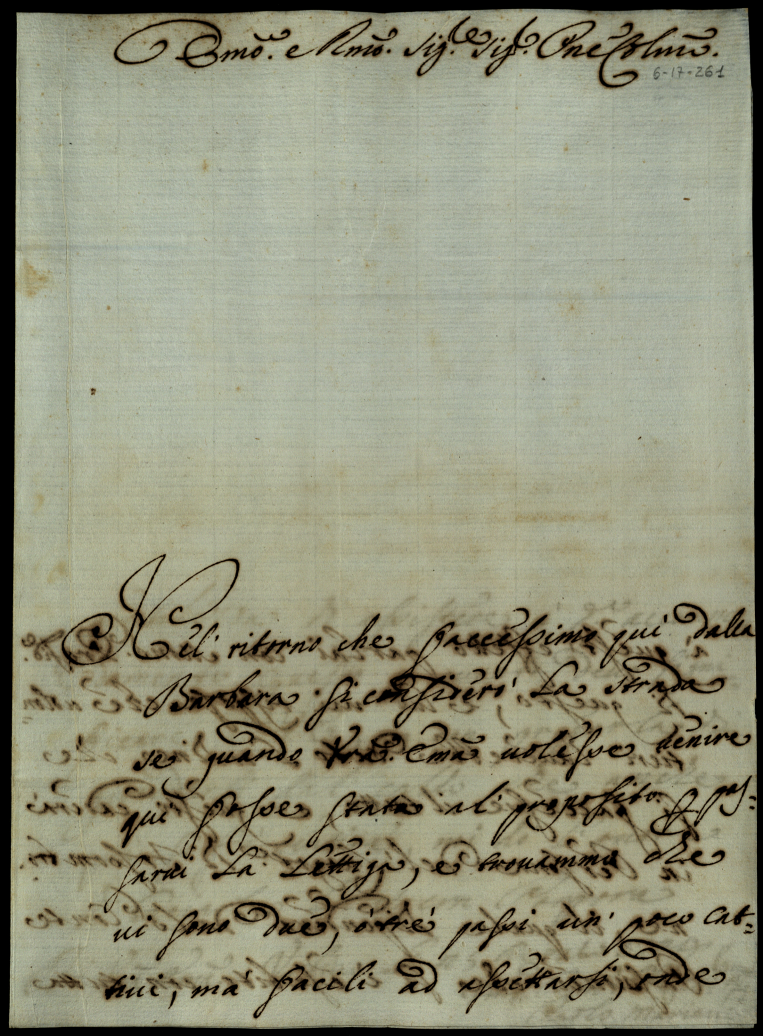 Emō. e Rmō. Sig.re Sig.r Pne Colmō.
6-17-261
Nell' ritorno che faccessimo qui dalla
Barbara si considerò La strada
se quando Vra. Emā uolesse uenire
qui fosse stata al proposito p pas=
sarui La Lettiga, e trouammo che
ui sono due, ò tre passi un' poco cat=
tiui, mà facili ad assettarsi, onde